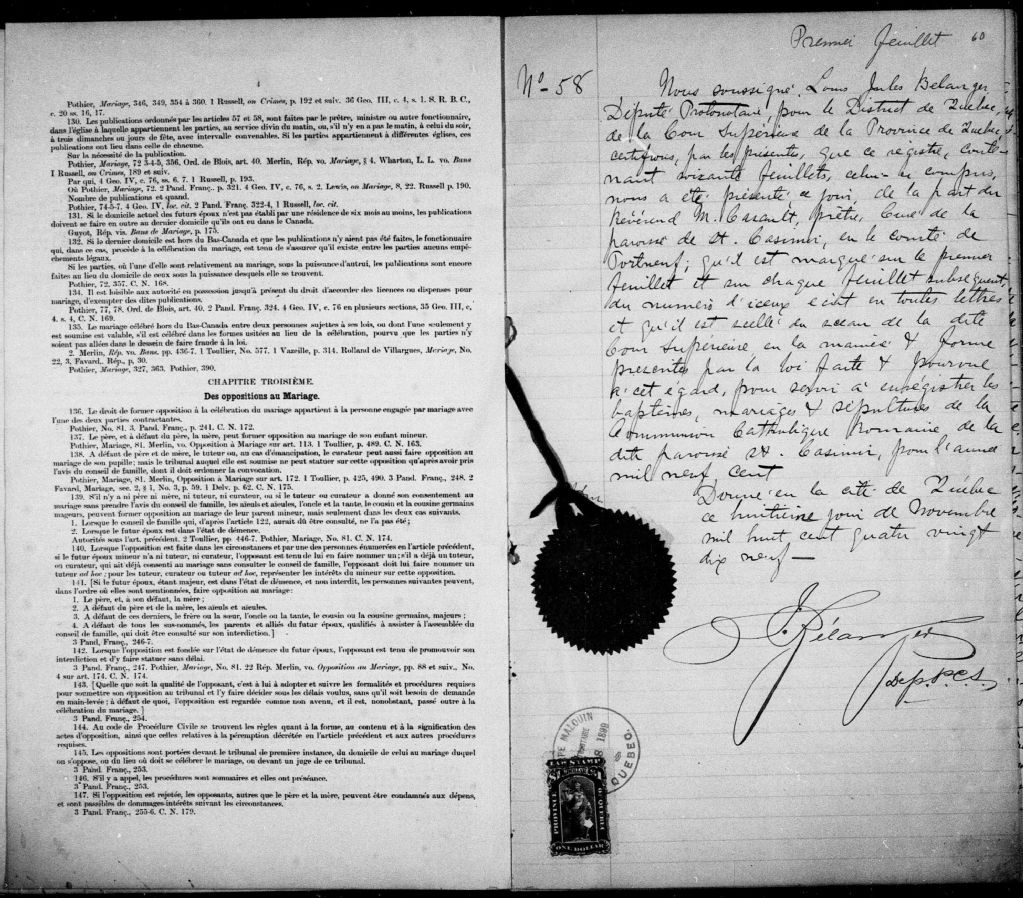 4
Pothier, Mariage, 346, 349, 354 à 360. 1 Russell, on Crimes, p. 192 et suiv. 36 Geo. III, c. 4, s. 1. S. R. B. C.,
c. 20 ss. 16, 17.
130. Les publications ordonnées par les articles 57 et 58, sont faites par le prêtre, ministre ou autre fonctionnaire,
dans l'église à laquelle appartiennent les parties, au service divin du matin, ou, s'il n'y en a pas le matin, à celui du soir,
à trois dimanches ou jours de fête, avec intervalle convenables. Si les parties appartiennent à différentes églises, ces
publications ont lieu dans celle de chacune.
Sur la nécessité de la publication.
Pothier, Mariage, 72 3-4-5, 356, Ord. de Blois, art. 40. Merlin, Rép. vo. Mariage, § 4. Wharton, L. L. vo. Bans
1 Russell, on Crimes, 189 et suiv.
Par qui, 4 Geo. IV, c. 76, ss. 6, 7. 1 Russell, p. 193.
Où Pothier, Mariage, 72. 2 Pand. Franç. p. 321. 4 Geo. IV, c. 76, s. 2. Lewis, on Mariage, 8, 22. Russell p. 190.
Nombre de publications et quand.
Pothier, 74-5-7. 4 Geo. IV, loc. cit. 2 Pand. Franç. 322-4, 1 Russell, loc. cit.
131. Si le domicile actuel des futurs époux n'est pas établi par une résidence de six mois au moins, les publications
doivent se faire en outre au dernier domicile qu'ils ont eu dans le Canada.
Guyot, Rép. vis. Bans de Mariage, p. 175.
132. Si le dernier domicile est hors du Bas-Canada et que les publications n'y aient pas été faites, le fonctionnaire
qui, dans ce cas, procède à la célébration du mariage, est tenu de s'assurer qu'il existe entre les parties aucuns empê-
chements légaux.
Si les parties, où l'une d'elle sont relativement au mariage, sous la puissance d'autrui, les publications sont encore
faites au lieu du domicile de ceux sous la puissance desquels elle se trouvent.
Pothier, 72, 357. C. N. 168.
134. Il est loisible aux autorité en possession jusqu'à présent du droit d'accorder des licences ou dispenses pour
mariage, d'exempter des dites publications.
Pothier, 77, 78. Ord. de Blois, art. 40. 2 Pand. Franç. 324. 4 Geo. IV, c. 76 en plusieurs sections, 35 Geo. III, c.
4. s. 4, C. N. 169.
135. Le mariage célébré hors du Bas-Canada entre deux personnes sujettes à ses lois, ou dont l'une seulement y
est soumise est valable, s'il est célébré dans les formes usitées au lieu de la célébration, pourvu que les parties n'y
soient pas allées dans le dessein de faire fraude à la loi.
2. Merlin, Rép. vo. Bans. pp. 436-7. 1 Toullier, No. 577. 1 Vazeille, p. 314. Rolland de Villargues, Mariage, No.
22, 3, Favard, Rép., p. 30.
Pothier, Mariage, 327, 363. Pothier, 390.
CHAPITRE TROISIÈME.
Des oppositions au Mariage.
136. Le droit de former opposition à la célébration du mariage appartient à la personne engagée par mariage avec
l'une des deux parties contractantes.
Pothier, No. 81. 3. Pand. Franç., p. 241. C. N. 172.
137. Le père, et à défaut du père, la mère, peut former opposition au mariage de son enfant mineur.
Pothier, Mariage, 81. Merlin, vo. Opposition à Mariage sur art. 113. 1 Toullier, p. 489. C. N. 163.
138. A défaut de père et de mère, le tuteur ou, au cas d'émancipation, le curateur peut aussi faire opposition au
mariage de son pupille; mais le tribunal auquel elle est soumise ne peut statuer sur cette opposition qu'après avoir pris
l'avis du conseil de famille, dont il doit ordonner la convocation.
Pothier, Mariage, 81. Merlin, Opposition à Mariage sur art. 172. 1 Toullier, p. 425, 490. 3 Pand. Franç., 248. 2
Favard, Mariage, sec. 2, § 1, No. 3, p. 59. 1 Delv. p. 62, C. N. 175.
139. S'il n'y a ni père ni mère, ni tuteur, ni curateur, ou si le tuteur ou curateur a donné son consentement au
mariage sans prendre l'avis du conseil de famille, les aieuls et aieules, l'oncle et la tante, le cousin et la cousine germains
majeurs, peuvent former opposition au mariage de leur parent mineur, mais seulement dans les deux cas suivants.
1. Lorsque le conseil de famille qui, d'après l'article 122, aurait dû être consulté, ne l'a pas été;
2. Lorsque le futur époux est dans l'état de démence.
Autorités sous l'art. précédent. 2 Toullier, pp. 446-7. Pothier, Mariage, No. 81. C. N. 174.
140. Lorsque l'opposition est faite dans les circonstances et par une des personnes énumérées en l'article précédent,
si le futur époux mineur n'a ni tuteur, ni curateur, l'opposant est tenu de lui en faire nommer un; s'il a déjà un tuteur,
ou curateur, qui ait déjà consenti au mariage sans consulter le conseil de famille, l'opposant doit lui faire nommer un
tuteur ad hoc; pour les tuteur, curateur ou tuteur ad hoc, représenter les intérêts du mineur sur cette opposition.
141. [Si le futur époux, étant majeur, est dans l'état de démence, et non interdit, les personnes suivantes peuvent,
dans l'ordre où elles sont mentionnées, faire opposition au mariage:
1. Le père, et, à son défaut, la mère;
2. A défaut du père et de la mère, les aieuls et aieules.
3. A défaut de ces derniers, le frère ou la sœur, l'oncle ou la tante, le cousin ou la cousine germains, majeurs;
4. A défaut de tous les sus-nommés, les parents et alliés du futur époux, qualifiés à assister à l'assemblée du
conseil de famille, qui doit être consulté sur son interdiction.]
3 Pand. Franç., 246-7.
142. Lorsque l'opposition est fondée sur l'état de démence du futur époux, l'opposant est tenu de promouvoir son
interdiction et d'y faire statuer sans délai.
3 Pand. Franç., 247. Pothier, Mariage, No. 81. 22 Rép. Merlin, vo. Opposition au Mariage, pp. 88 et suiv., No.
4 sur art. 174. C. N. 174.
143. [Quelle que soit la qualité de l'opposant, c'est à lui à adopter et suivre les formalités et procédures requises
pour soumettre son opposition au tribunal et l'y faire décider sous les délais voulus, sans qu'il soit besoin de demande
en main-levée; à défaut de quoi, l'opposition est regardée comme non avenu, et il est, nonobstant, passé outre à la
célébration du mariage.]
3 Pand. Franç., 254.
144. Au code de Procédure Civile se trouvent les règles quant à la forme, au contenu et à la signification des
actes d'opposition, ainsi que celles relatives à la péremption décrétée en l'article précédent et aux autres procédures
requises.
145. Les oppositions sont portées devant le tribunal de première instance, du domicile de celui au mariage duquel
on s'oppose, ou du lieu où doit se célébrer le mariage, ou devant un juge de ce tribunal.
3 Pand. Franç., 253.
146. S'il y a appel, les procédures sont sommaires et elles ont préséance.
3 Pand. Franç., 253.
147. Si l'opposition est rejetée, les opposants, autres que le père et la mère, peuvent être condamnés aux dépens,
et sont passibles de dommages-intérêts suivant les circonstances.
3 Pand. Franç., 255-6. C. N. 179.
Premier feuillet 60
No 58
Nous soussigné, Louis Jules Belanger,
Député Protonotaire, pour le District de Québec,
de la Cour Supérieure de la Province de Québec,
certifions, par les présentes, que ce registre, conte-
nant soixante feuillets, celui-ci compris,
nous a été présenté ce jour, de la part du
révérend M. Casault, prêtre, Curé de la
paroisse de St. Casimir, en le comté de
Portneuf; qu'il est marqué sur le premier
feuillet et sur chaque feuillet subséquent,
du numéro d'iceux écrit en toutes lettres
et qu'il est scellé du sceau de la dite
Cour Supérieure en la manière & forme
prescrites par la loi faite & pourvue
à cet égard, pour servir à enrégistrer les
baptêmes, mariages & sépultures de la
Communion Catholique Romaine de la
dite paroisse St. Casimir, pour l'année
mil neuf cent
Donné en la cité de Québec
ce huitième jour de Novembre
mil huit cent quatre vingt
dix neuf—
J. Bélanger
Dep. P.C.S.
MALOUIN
1899
QUEBEC
LAW STAMP
PROVINCE
O. QUEBEC
ONE DOLLAR